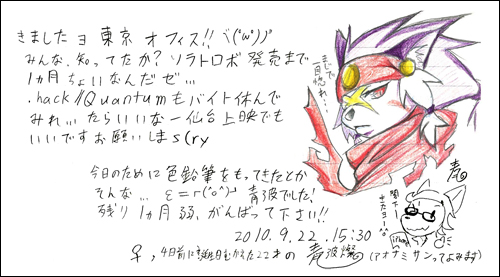 きました ヨ 東京 オフィス!! ヾ(°ω°)ノ"
みんな、知ってたか? ソラトロボ発売まで
1ヵ月ちょいなんだゼ…
.hack//Quantumもバイト休んで
みれ…たらいいなー仙台上映でも
いいですお願いしまs(ry
今日のために色鉛筆をもってきたとか
そんな… ε=r(°o°) 青波でした!
残り 1ヵ月弱、がんばって下さい!!
2010.9.22.15:30
♀、4日前に誕生日むかえた22才の 青波燦 (アオナミ サンってよみます)
まじで
一目惚れ…
青
閣下